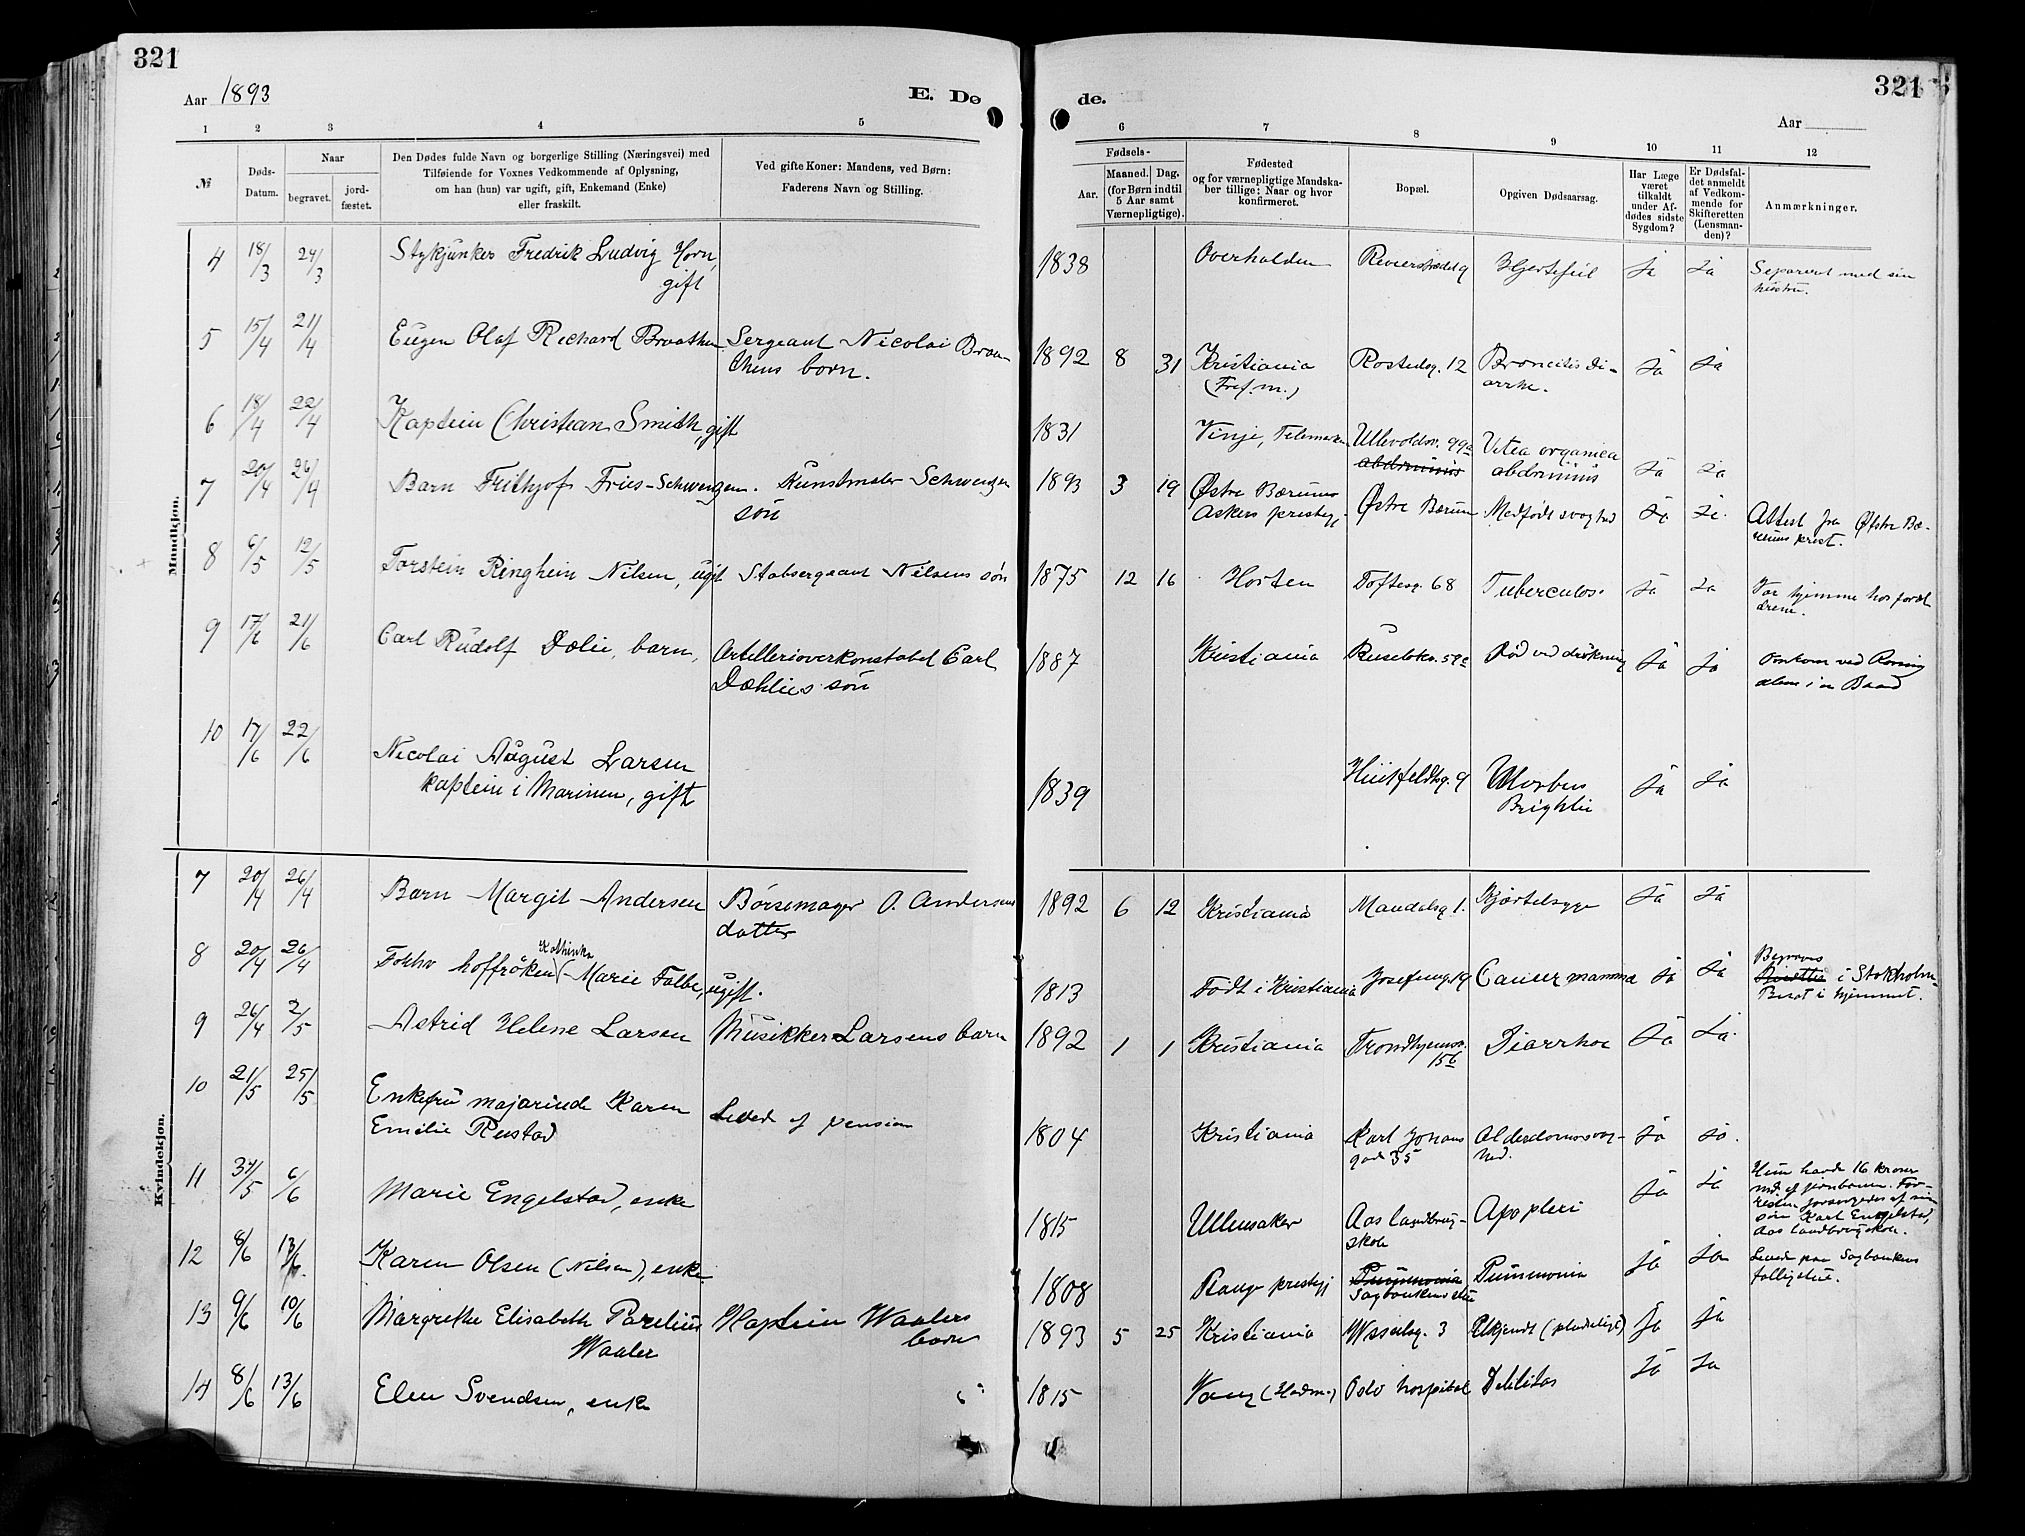 321
Aar 1893
E. De
1 2 3 4 5
№
Døds-
Datum.
Naar
begravet.
jord-
fæstet.
Den Dødes fulde Navn og borgerlige Stilling (Næringsvei) med
Tilføiende for Voxnes Vedkommende af Oplysning,
om han (hun) var ugift, gift, Enkemand (Enke)
eller fraskilt.
Ved gifte Koner: Mandens, ved Børn:
Faderens Navn og Stilling.
Mandkjøn.
4 18/3 24/3 Stykjunker Fredrik Ludvig Horn,
gift
5 15/4 21/4 Eugen Olaf Richard Braathen Sergeant Nicolai Braa-
thens barn.
6 18/4 22/4 Kaptein Christian Smith, gift
7 20/4 26/4 Barn Frithjof Fries-Schwenzen. Kunstmaler Schwenzen
søn
8 6/5 12/5 Torstein Ringheim Nilsen, ugift Stabsergeant Nilsens søn
9 17/6 21/6 Carl Rudolf Dælie, barn, Artillerioverkonstabel Carl
Dæhlies søn
10 17/6 22/6 Nicolai August Larsen
kaptein i Marinen, gift
Kvindekjøn.
7 20/4 26/4 Barn Margit Andersen Børsemager O. Andersens
datter
8 20/4 26/4 hoffrøken Kathinka Marie Falbe, ugift.
9 26/4 2/5 Astrid Helene Larsen Musikker Larsens barn
10 21/5 25/5 Enkefru majorinde Karen
Emilie Rustad Leved af pension
11 31/5 6/6 Marie Engelstad, enke
12 8/6 13/6 Karen Olsen (Nilsen), enke
13 9/6 10/6 Margrethe Elisabeth Parelius Kaptein Waalers
Waaler barn
14 8/6 13/6 Elen Svendsen, enke
321
de.
Aar
6 7 8 9 10 11 12
Fødsels-
Aar.
Maaned. Dag.
(for Børn indtil
5 Aar samt
Værnepligtige).
Fødested
og for værnepligtige Mandska-
ber tillige: Naar og hvor
konfirmeret.
Bopæl.
Opgiven Dødsaarsag.
Har Læge
været
tilkaldt
under Af-
dødes sidste
Sygdom?
Er Dødsfal-
det anmeldt
af Vedkom-
mende for
Skifteretten
(Lensman-
den)?
Anmærkninger.
1838 Overhalden Revierstrædet 9 Hjertefeil ja ja Separert med sin
hustru.
1892 8 31 Kristiania Rostedsg. 12 Broncitis di-
(Tref. m.) arrhe. ja ja
1831 Vinje, Telemarken Ullevoldsv. 99a Vitea organica
abdominis abdominis ja ja
1893 3 19 Østre Bærums
Askers prestegj. Østre Bærum Medfødt svaghed ja ja. Attest fra Østre Bæ-
rums prest.
1875 12 16 Horten Toftesg. 68 Tuberculos. ja ja Var hjemme hos foræl-
drene.
1887 Kristiania Ruseløkv. 59c Død ved drukning ja ja Omkom ved Roning
alene i en Baad
1839 Huitfeldtsg. 9 Morbus
Brightii ja ja
1892 6 12 Kristiania Mandalsg 1. Kjertelsyge ja ja
1813 Født i Kristiania Josefinesg. 19 Cancer mamma ja ja Begraves
i Stokholm
Bisat i hjemmet.
1892 1 1 Kristiania Trondhjemsv.
15b Diarrhoe ja ja.
1804 Kristiania Karl Johans
gade 35 Alderdomssvag-
hed. ja ja.
1815 Ullensaker Aas Landbrug-
skole Apoplexi ja ja Hun havde 16 kroner
md. af jernbanen. For-
resten forsørgedes af sin
søn Karl Engelstad,
Aas Landbrugskole.
1808 prestegj Pneumonia
Sagbankens stue Pneumonia ja ja Leved paa Sagbankens
fattigstue.
1893 5 25 Kristiania Wesselsg. 3 Ukjendt (pludseligt) ja ja
1815 Vang (Hedm.) Oslo hospital Debilitas ja ja